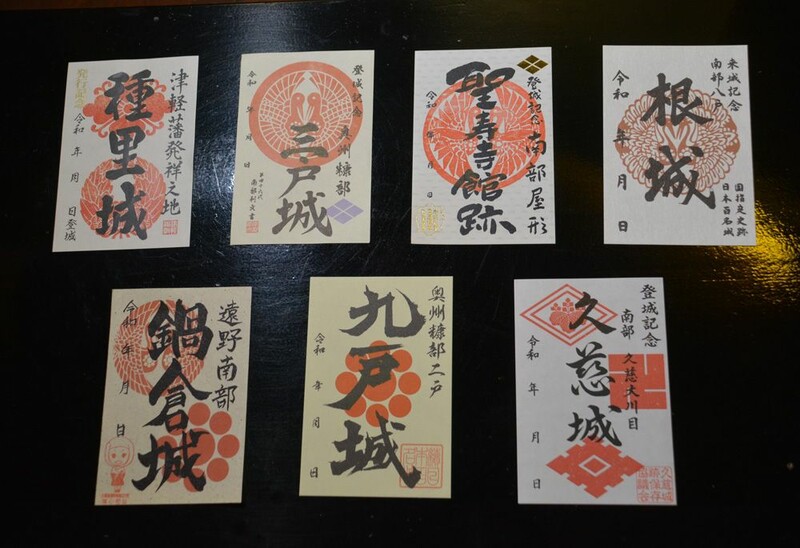 津軽藩発祥之地
種里城
発行記念
令和 年 月 日登城
登城記念
奥州糠部
三戸城
令和 年 月 日
登城記念
南部屋形
聖寿寺館跡
令和 年 月 日
来城記念
南部八戸
根城
国指定史跡
日本百名城
令和 年 月 日
遠野南部
鍋倉城
令和 年 月 日
奥州糠部二戸
九戸城
令和 年 月 日
登城記念
南部
久慈大川目
久慈城
令和 年 月 日
久慈城
跡保存
協議会